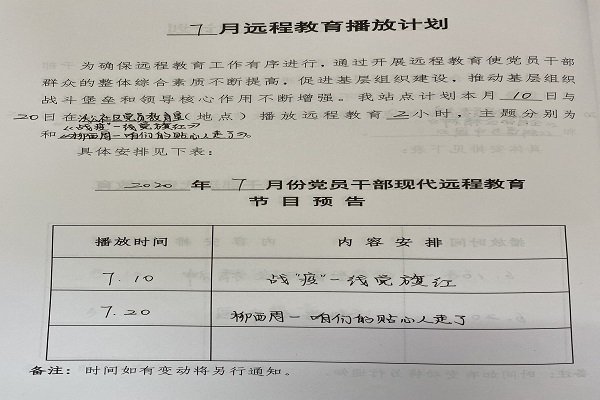 7 月远程教育播放计划
为确保远程教育工作有序进行，通过开展远程教育使党员干部
群众的整体综合素质不断提高，促进基层组织建设，推动基层组织
战斗堡垒和领导核心作用不断增强。我站点计划本月 10 日与
20日在 社区党员教育室（地点）播放远程教育 2 小时，主题分别为
《战疫"一线党旗红》
和《柳西周一咱们的贴心人走了》。
具体安排见下表：
2020 年 7 月份党员干部现代远程教育
节目预告
播放时间 内容安排
7.10 战"疫"一线党旗红
7.20 柳西周一咱们的贴心人走了
备注：时间如有变动将另行通知。